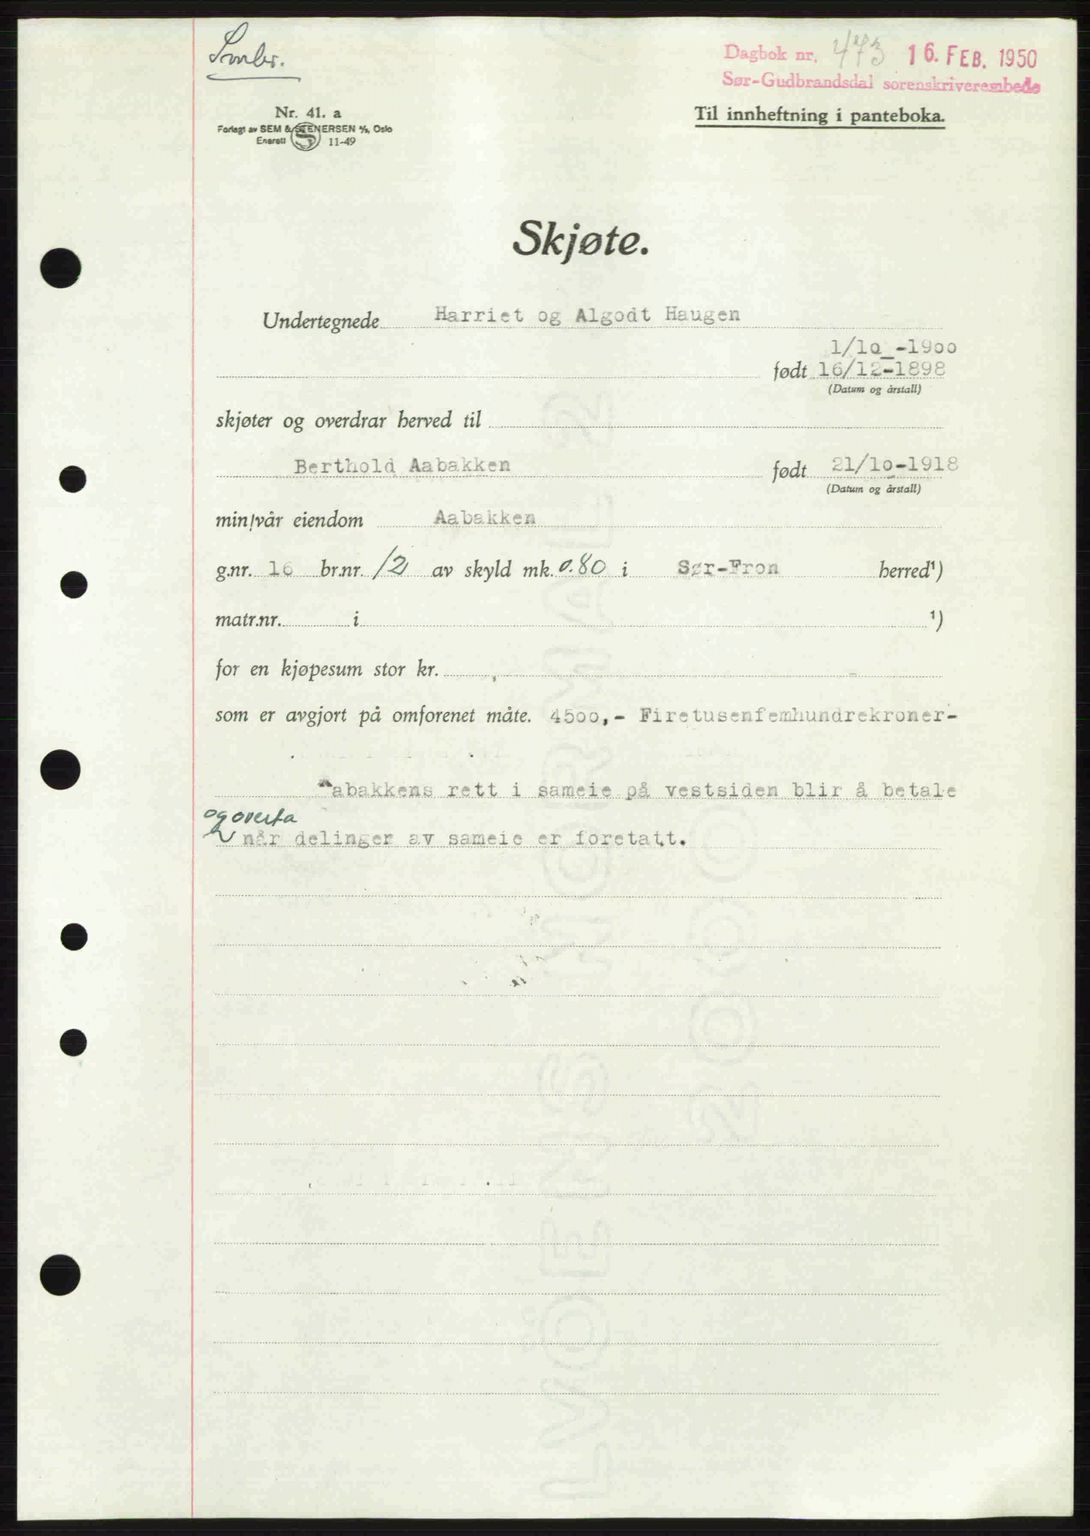 Dagbok nr. 473 16. FEB. 1950
Sør-Gudbrandsdal sorenskriverembede
Nr. 41. a
Forlagt av SEM & STENERSEN A/S, Oslo
Enerett 11-49
Til innheftning i panteboka.
Skjøte.
Undertegnede Harriet og Algodt Haugen
1/10 -1900
født 16/12-1898
(Datum og årstall)
skjøter og overdrar herved til
Berthold Aabakken født 21/10-1918
(Datum og årstall)
min/vår eiendom Aabakken
g.nr. 16 br.nr. 12 av skyld mk. 0.80 i Sør-Fron herred¹)
matr.nr. i ¹)
for en kjøpesum stor kr.
som er avgjort på omforenet måte. 4500,- Firetusenfemhundrekroner-
Aabakkens rett i sameie på vestsiden blir å betale
og overta
når delinger av sameie er foretatt.
LVÖENS NORMAL 2
2000